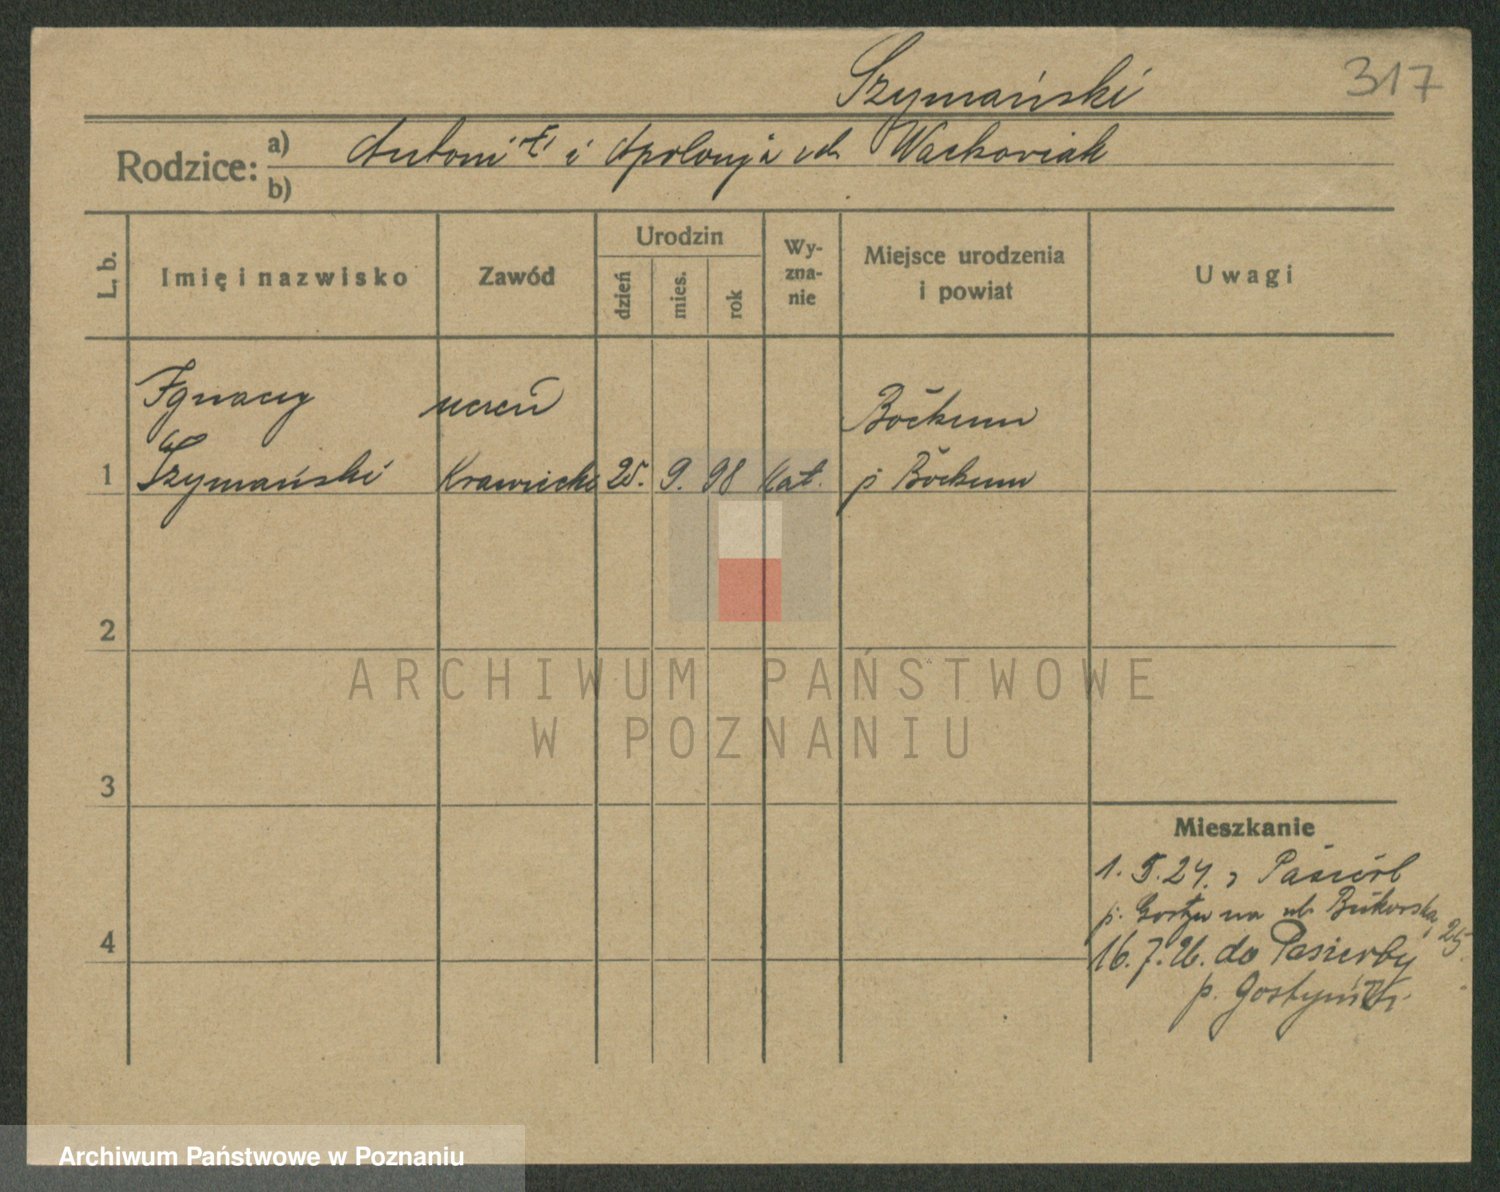 317
Szymański
Rodzice: a) Antoni i Apolonja ur. Wackowiak
b)
L. b.
Imię i nazwisko
Zawód
Urodzin
dzień
mies.
rok
Wy-
zna-
nie
Miejsce urodzenia
i powiat
Uwagi
Ignacy uczeń Bochum
1 Szymański Krawiecki 25. 9. 98 kat. p Bochum
2
ARCHIWUM PAŃSTWOWE
W POZNANIU
3
Mieszkanie
1. 5. 24. z Pasierb
p. Gostyń na ul. Bukowska 25.
4
16. 7. 26. do Pasierby
p. Gostyński
Archiwum Państwowe w Poznaniu